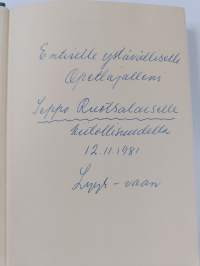 Entiselle ystävälliselle
Opettajalleni
Seppo Ruotsalaiselle
kiitollisuudella
12.11.1981.